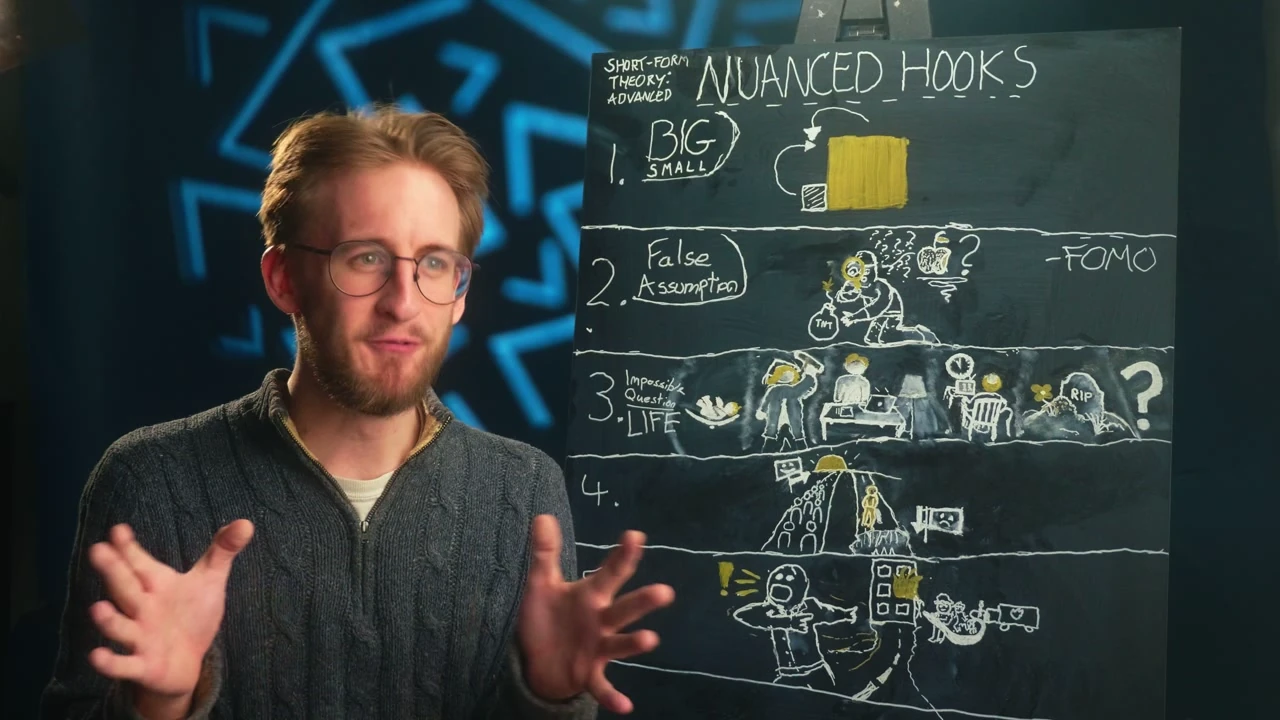 SHORT-FORM
THEORY:
ADVANCED
NUANCED HOOKS
1.
BIG
SMALL
2.
False
Assumption
???????
?
-FOMO
TNT
3.
Impossible
Question
LIFE
RIP
?
4.
!